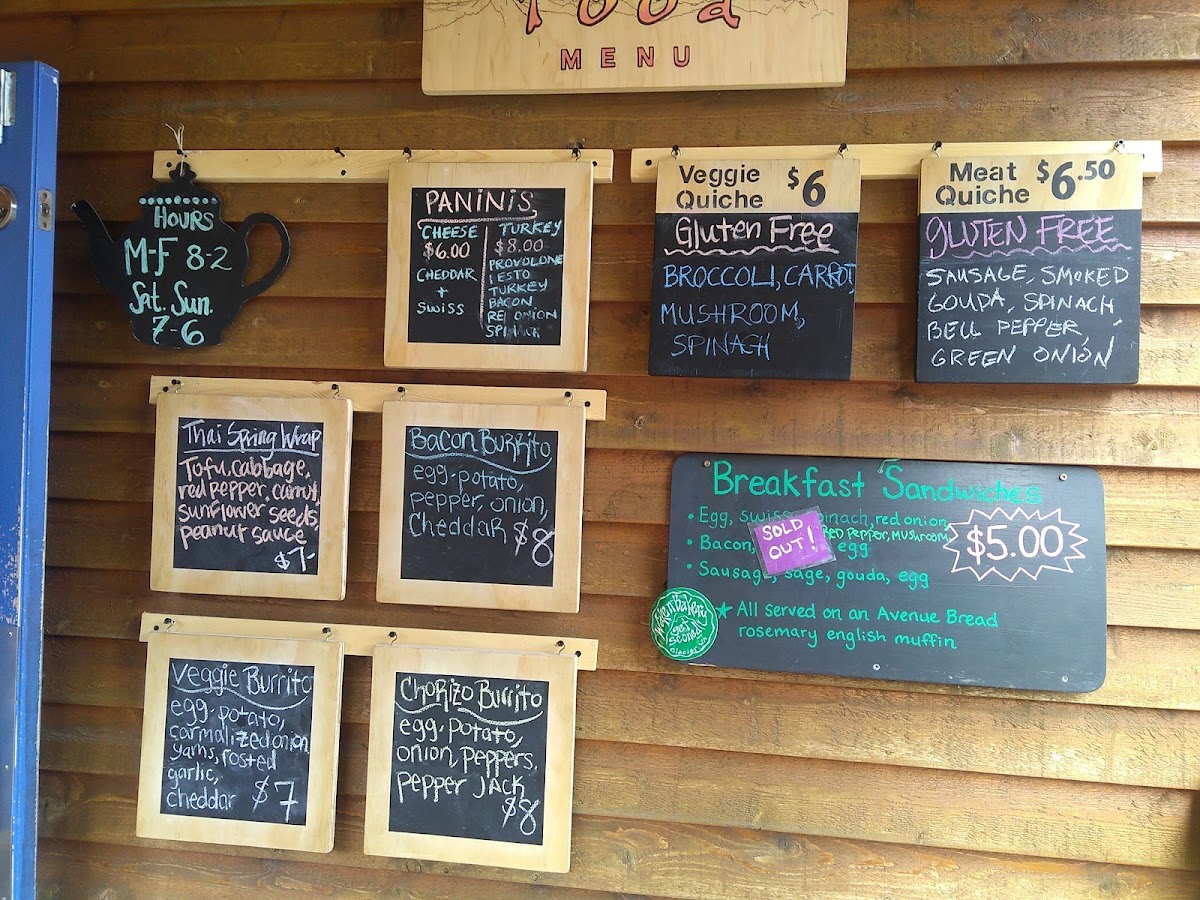 Food
MENU
HOURS
M-F 8-2
Sat. Sun.
7-6
PANINIS
CHEESE
$6.00
CHEDDAR
+
SWISS
TURKEY
$8.00
PROVOLONE
PESTO
TURKEY
BACON
RED ONION
SPINACH
Veggie
Quiche
$6
Gluten Free
BROCCOLI, CARROT,
MUSHROOM,
SPINACH
Meat
Quiche
$6.50
GLUTEN FREE
SAUSAGE, SMOKED
GOUDA, SPINACH
BELL PEPPER,
GREEN ONION
Thai Spring Wrap
Tofu, cabbage,
red pepper, carrot,
sunflower seeds,
peanut sauce
$7-
Bacon Burrito
egg-potato,
pepper, onion,
Cheddar $8
Breakfast Sandwiches
• Egg, swiss, spinach, red onion,
Red Pepper, Mushroom
• Bacon, egg
• Sausage, sage, gouda, egg
SOLD
OUT!
$5.00
★ All served on an Avenue Bread
rosemary english muffin
Veggie Burrito
egg-potato,
carmalized onion,
yams, rosted
garlic,
cheddar $7
Chorizo Burrito
egg-potato,
onion, peppers,
pepper Jack
$8